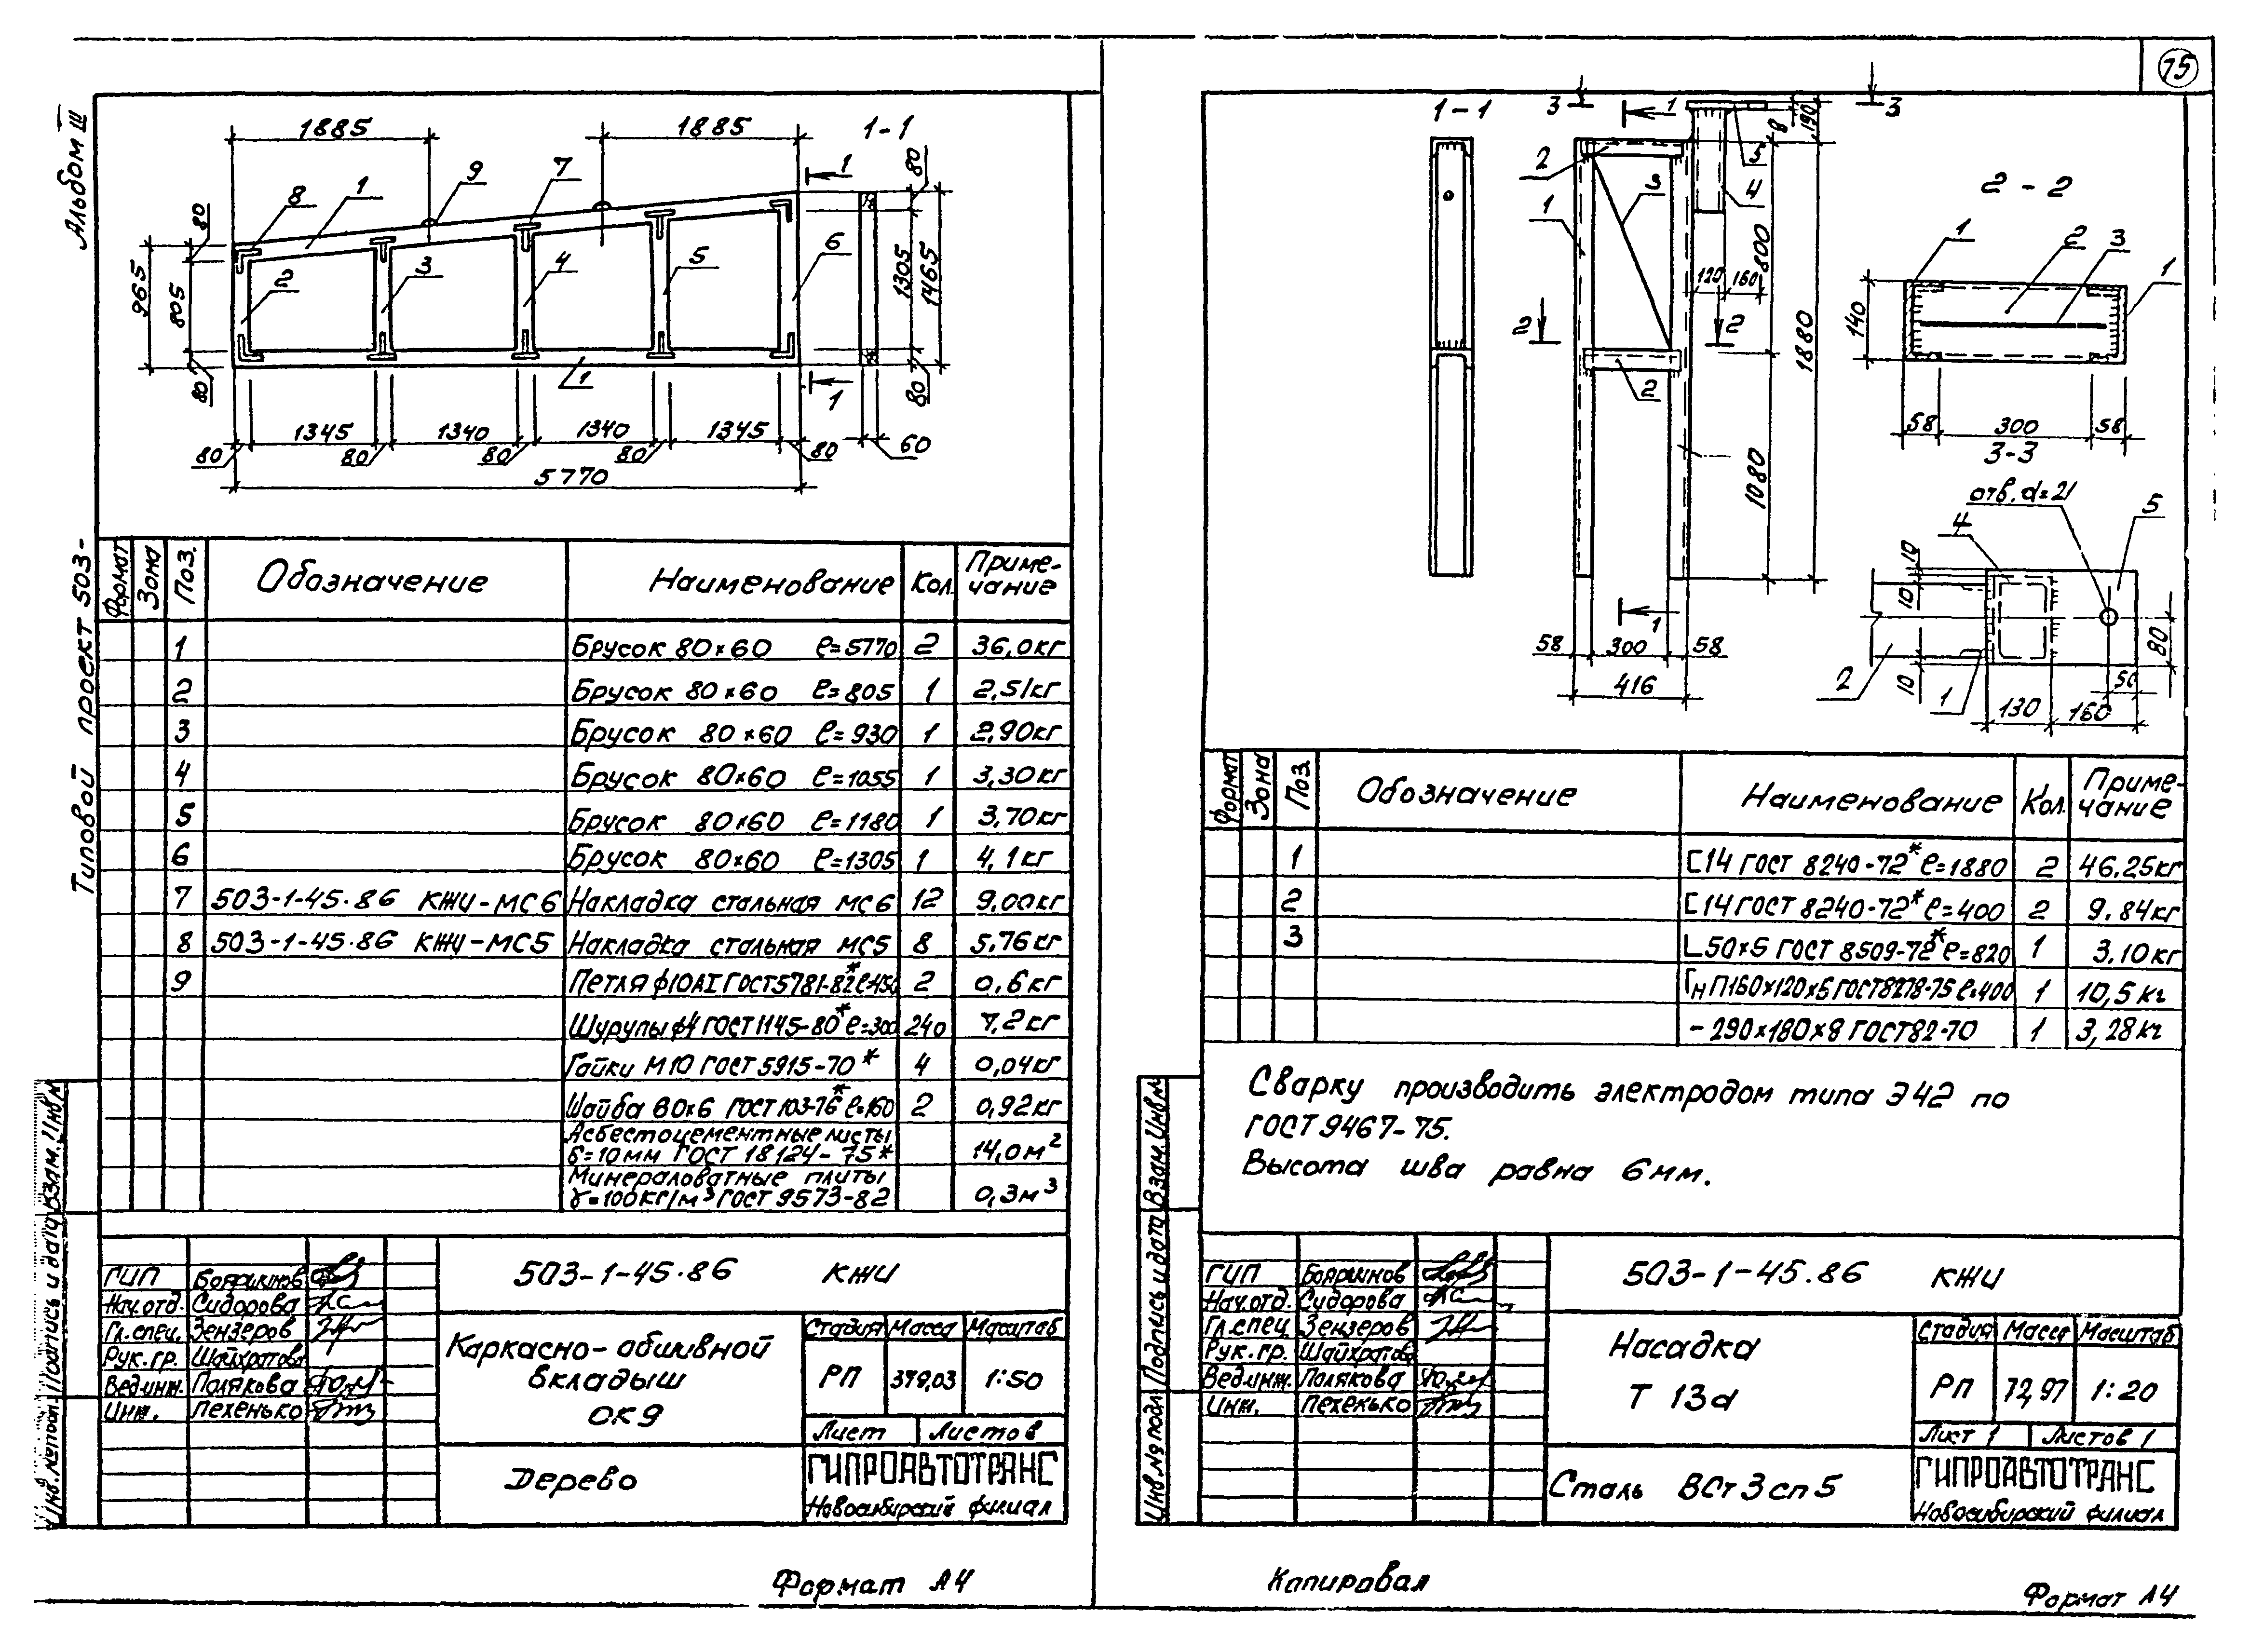 75
Альбом III
Типовой проект 503-
1885
1885
1-1
1
80
8
1
9
7
80
965
805
80
2
3
4
5
6
1305
1465
80
1
1
1345
1340
1340
1345
80
80
80
80
80
60
5770
Формат Зона Поз. Обозначение Наименование Кол. Примечание
1 Брусок 80×60 ℓ=5770 2 36,0кг
2 Брусок 80×60 ℓ=805 1 2,51кг
3 Брусок 80×60 ℓ=930 1 2,90кг
4 Брусок 80×60 ℓ=1055 1 3,30кг
5 Брусок 80×60 ℓ=1180 1 3,70кг
6 Брусок 80×60 ℓ=1305 1 4,1кг
7 503-1-45.86 КЖИ-МС6 Накладка стальная МС6 12 9,00кг
8 503-1-45.86 КЖИ-МС5 Накладка стальная МС5 8 5,76кг
9 Петля ф10АI ГОСТ5781-82* ℓ=450 2 0,6кг
Шурупы ф4 ГОСТ1145-80* ℓ=300 240 7,2кг
Гайки М10 ГОСТ 5915-70* 4 0,04кг
Шайба 80×6 ГОСТ 103-76* ℓ=160 2 0,92кг
Асбестоцементные листы
δ=10мм ГОСТ 18124-75* 14,0м²
Минераловатные плиты
γ=100кг/м³ ГОСТ 9573-82 0,3м³
Взам. Инв №
Подпись и дата
Инв. № подл.
ГИП Бояршинов
Нач.отд. Сидорова
Гл.спец. Зензеров
Рук.гр. Шайхратова
Вед.инж. Полякова
Инж. Пехенько
503-1-45.86 КЖИ
Каркасно-обшивной
вкладыш
ОК9
Стадия Масса Масштаб
РП 379,03 1:50
Лист Листов
Дерево
ГИПРОАВТОТРАНС
Новосибирский филиал
Формат А4
1-1
3
1
3
8
190
2
5
3
4
1
800
120
160
2
2
1880
2
1080
1
58
300
58
416
2-2
1
2
3
1
140
58
300
58
3-3
отв. d=21
4
5
10
10
10
80
2
1
50
130
160
Формат Зона Поз. Обозначение Наименование Кол. Примечание
1 [14 ГОСТ 8240-72* ℓ=1880 2 46,25кг
2 [14 ГОСТ 8240-72* ℓ=400 2 9,84кг
3 L50×5 ГОСТ 8509-72* ℓ=820 1 3,10кг
Гн П160×120×5 ГОСТ8278-75 ℓ=400 1 10,5кг
-290×180×8 ГОСТ82-70 1 3,28кг
Сварку производить электродом типа Э42 по
ГОСТ 9467-75.
Высота шва равна 6мм.
Взам. Инв №
Подпись и дата
Инв № подл.
ГИП Бояршинов
Нач.отд. Сидорова
Гл.спец. Зензеров
Рук.гр. Шайхратова
Вед.инж. Полякова
Инж. Пехенько
503-1-45.86 КЖИ
Насадка
Т 13а
Стадия Масса Масштаб
РП 72,97 1:20
Лист 1 Листов 1
Сталь ВСт3сп5
ГИПРОАВТОТРАНС
Новосибирский филиал
Копировал
Формат А4